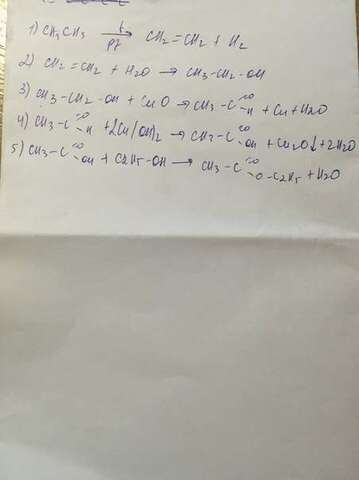 1) CH3CH3 t Pt → CH2=CH2 + H2
2) CH2=CH2 + H2O → CH3-CH2-OH
3) CH3-CH2-OH + CuO → CH3-C=O H + Cu + H2O
4) CH3-C=O H + 2Cu(OH)2 → CH3-C=O OH + Cu2O↓ + 2H2O
5) CH3-C=O OH + C2H5-OH → CH3-C=O O-C2H5 + H2O